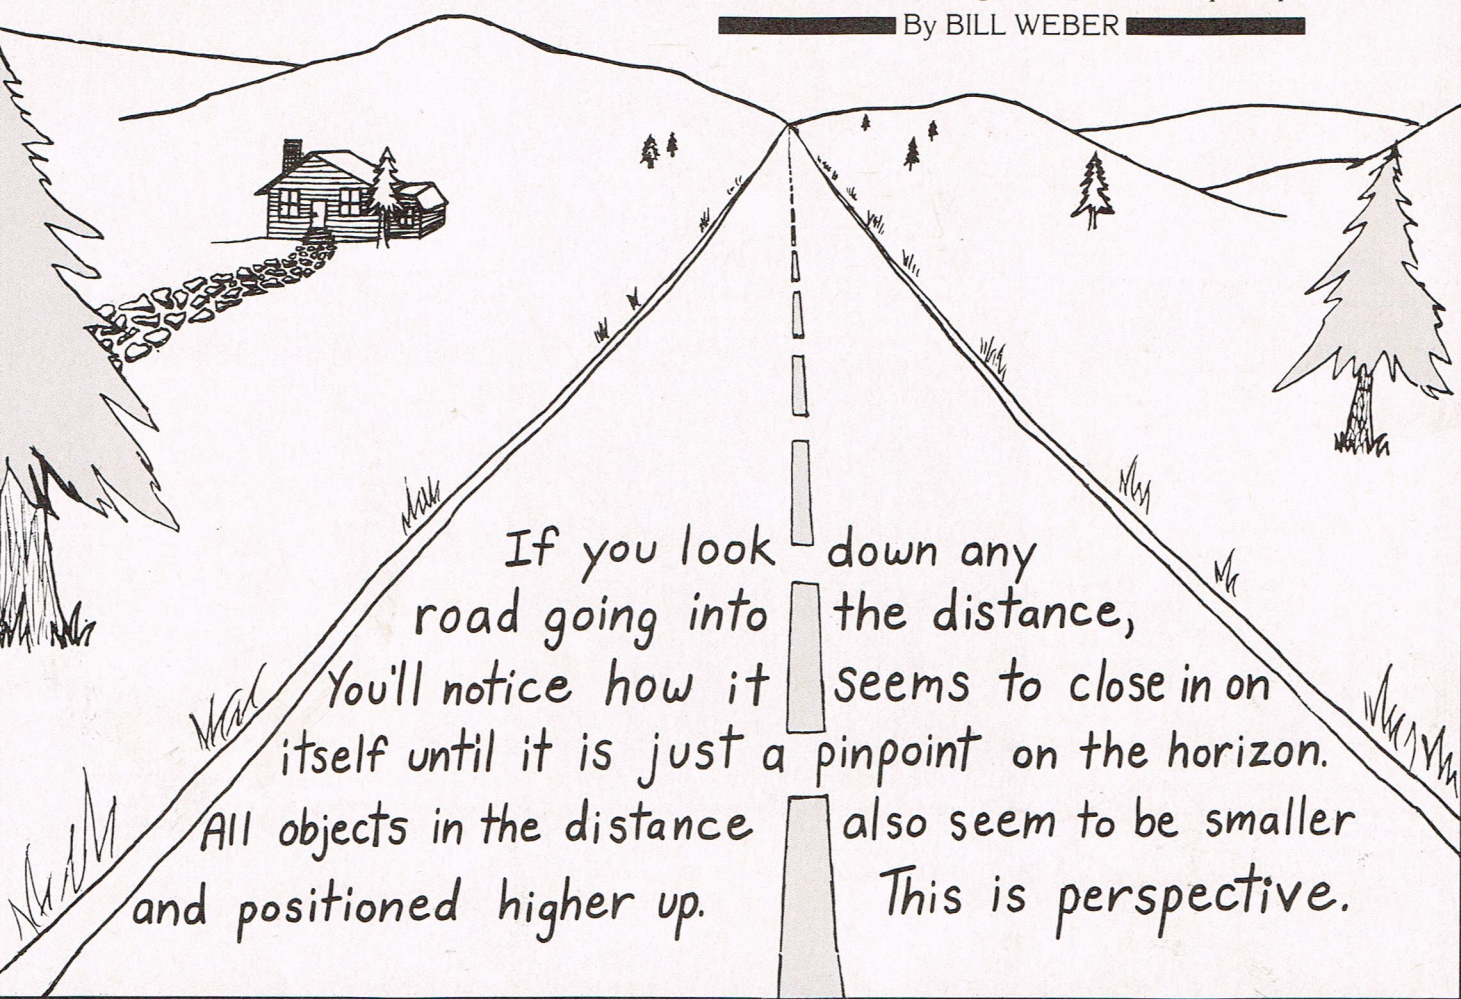 By BILL WEBER
If you look down any
road going into the distance,
You'll notice how it seems to close in on
itself until it is just a pinpoint on the horizon.
All objects in the distance also seem to be smaller
and positioned higher up. This is perspective.